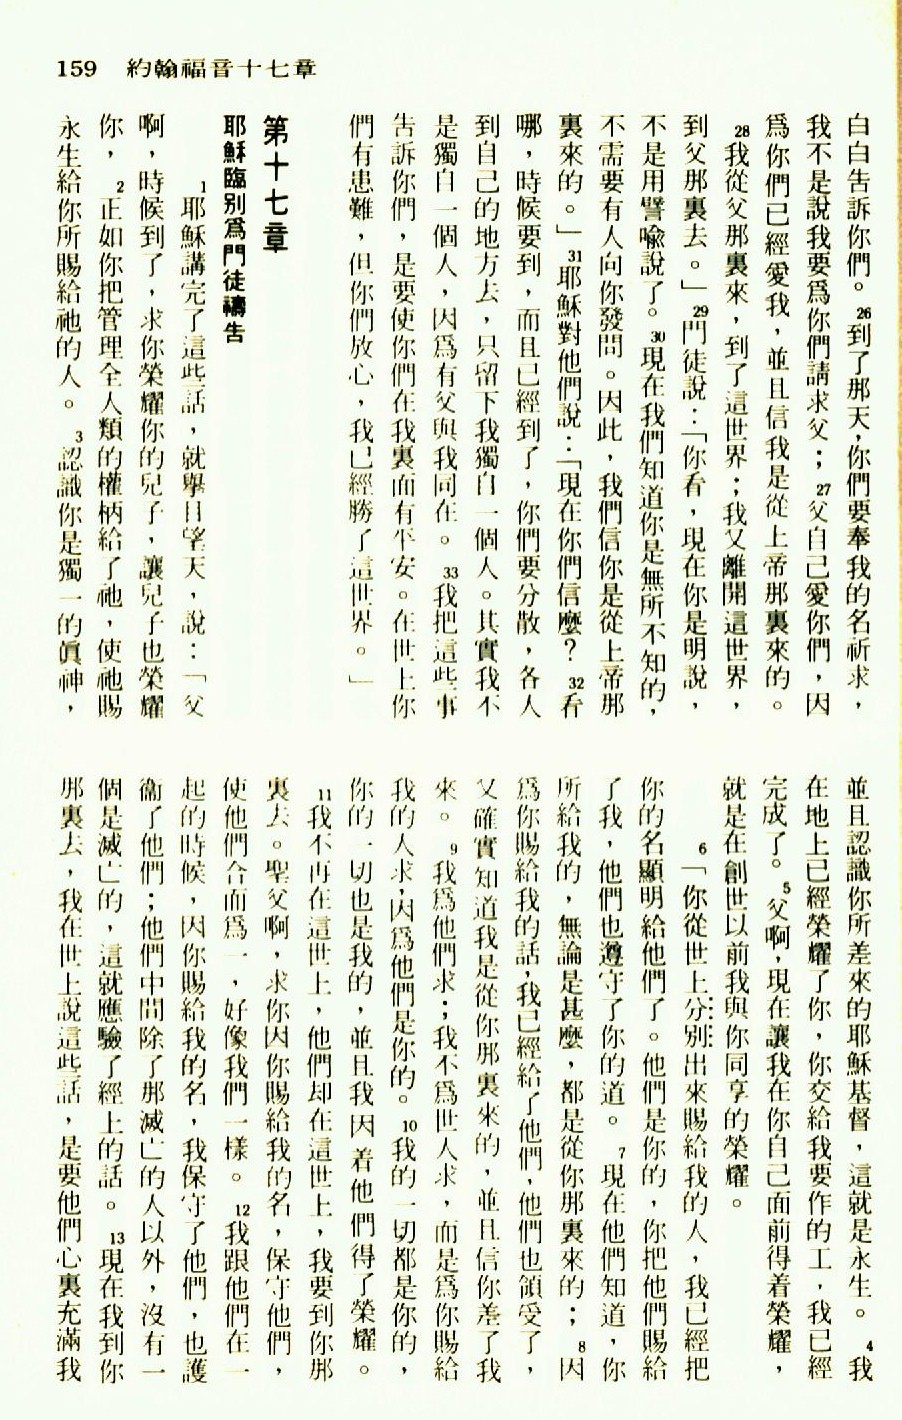 159 約翰福音十七章
白白告訴你們。26到了那天,你們要奉我的名祈求,
我不是說我要爲你們請求父;27父自己愛你們,因
爲你們已經愛我,並且信我是從上帝那裏來的。
28我從父那裏來,到了這世界;我又離開這世界,
到父那裏去。」29門徒說:「你看,現在你是明說,
不是用譬喩說了。30現在我們知道你是無所不知的,
不需要有人向你發問。因此,我們信你是從上帝那
裏來的。」31耶穌對他們說:「現在你們信麼?32看
哪,時候要到,而且已經到了,你們要分散,各人
到自己的地方去,只留下我獨自一個人。其實我不
是獨自一個人,因爲有父與我同在。33我把這些事
告訴你們,是要使你們在我裏面有平安。在世上你
們有患難,但你們放心,我已經勝了這世界。」
第十七章
耶穌臨別爲門徒禱告
1耶穌講完了這些話,就舉目望天,說:「父
啊,時候到了,求你榮耀你的兒子,讓兒子也榮耀
你,2正如你把管理全人類的權柄給了祂,使祂賜
永生給你所賜給祂的人。3認識你是獨一的眞神,
並且認識你所差來的耶穌基督,這就是永生。4我
在地上已經榮耀了你,你交給我要作的工,我已經
完成了。5父啊,現在讓我在你自己面前得着榮耀,
就是在創世以前我與你同享的榮耀。
6「你從世上分別出來賜給我的人,我已經把
你的名顯明給他們了。他們是你的,你把他們賜給
了我,他們也遵守了你的道。7現在他們知道,你
所給我的,無論是甚麼,都是從你那裏來的;8因
爲你賜給我的話,我已經給了他們,他們也領受了,
又確實知道我是從你那裏來的,並且信你差了我
來。9我爲他們求;我不爲世人求,而是爲你賜給
我的人求,因爲他們是你的。10我的一切都是你的,
你的一切也是我的,並且我因着他們得了榮耀。
11我不再在這世上,他們却在這世上,我要到你那
裏去。聖父啊,求你因你賜給我的名,保守他們,
使他們合而爲一,好像我們一樣。12我跟他們在一
起的時候,因你賜給我的名,我保守了他們,也護
衞了他們;他們中間除了那滅亡的人以外,沒有一
個是滅亡的,這就應驗了經上的話。13現在我到你
那裏去,我在世上說這些話,是要他們心裏充滿我